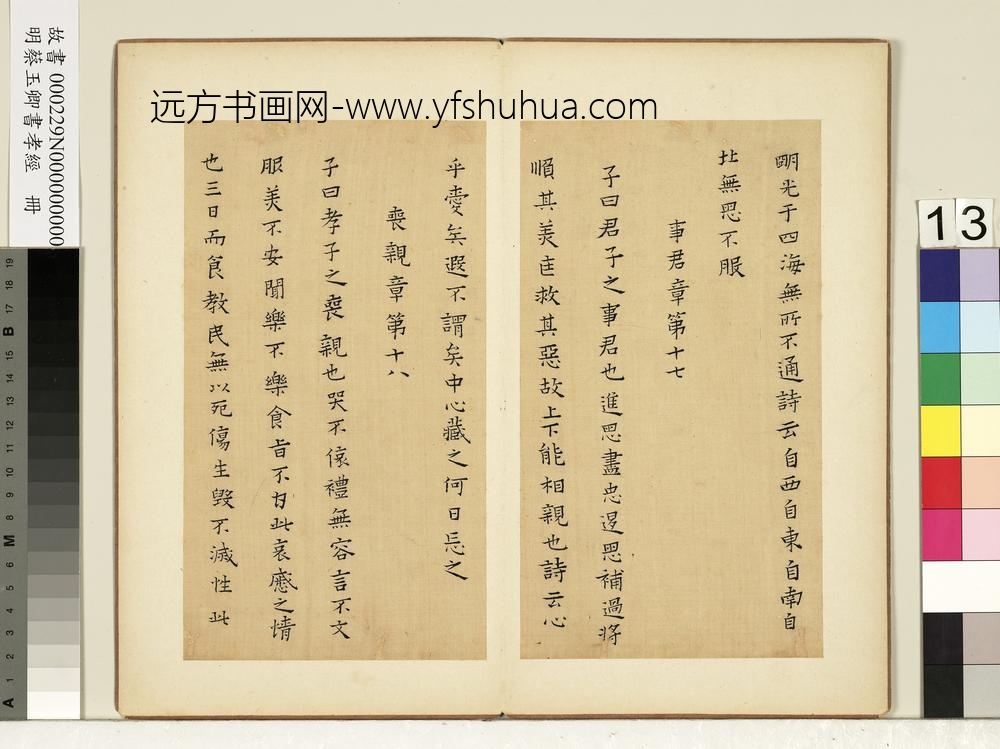 远方书画网-www.yfshuhua.com
故書 000229N000000000
明蔡玉卿書孝經 冊
13
明光于四海無所不通詩云自西自東自南自
北無思不服
事君章第十七
子曰君子之事君也進思盡忠退思補過將
順其美匡救其惡故上下能相親也詩云心
乎愛矣遐不謂矣中心藏之何日忘之
喪親章第十八
子曰孝子之喪親也哭不偯禮無容言不文
服美不安聞樂不樂食旨不甘此哀慼之情
也三日而食教民無以死傷生毀不滅性此
A 1 2 3 4 5 6 M 8 9 10 11 12 13 14 15 B 17 18 19